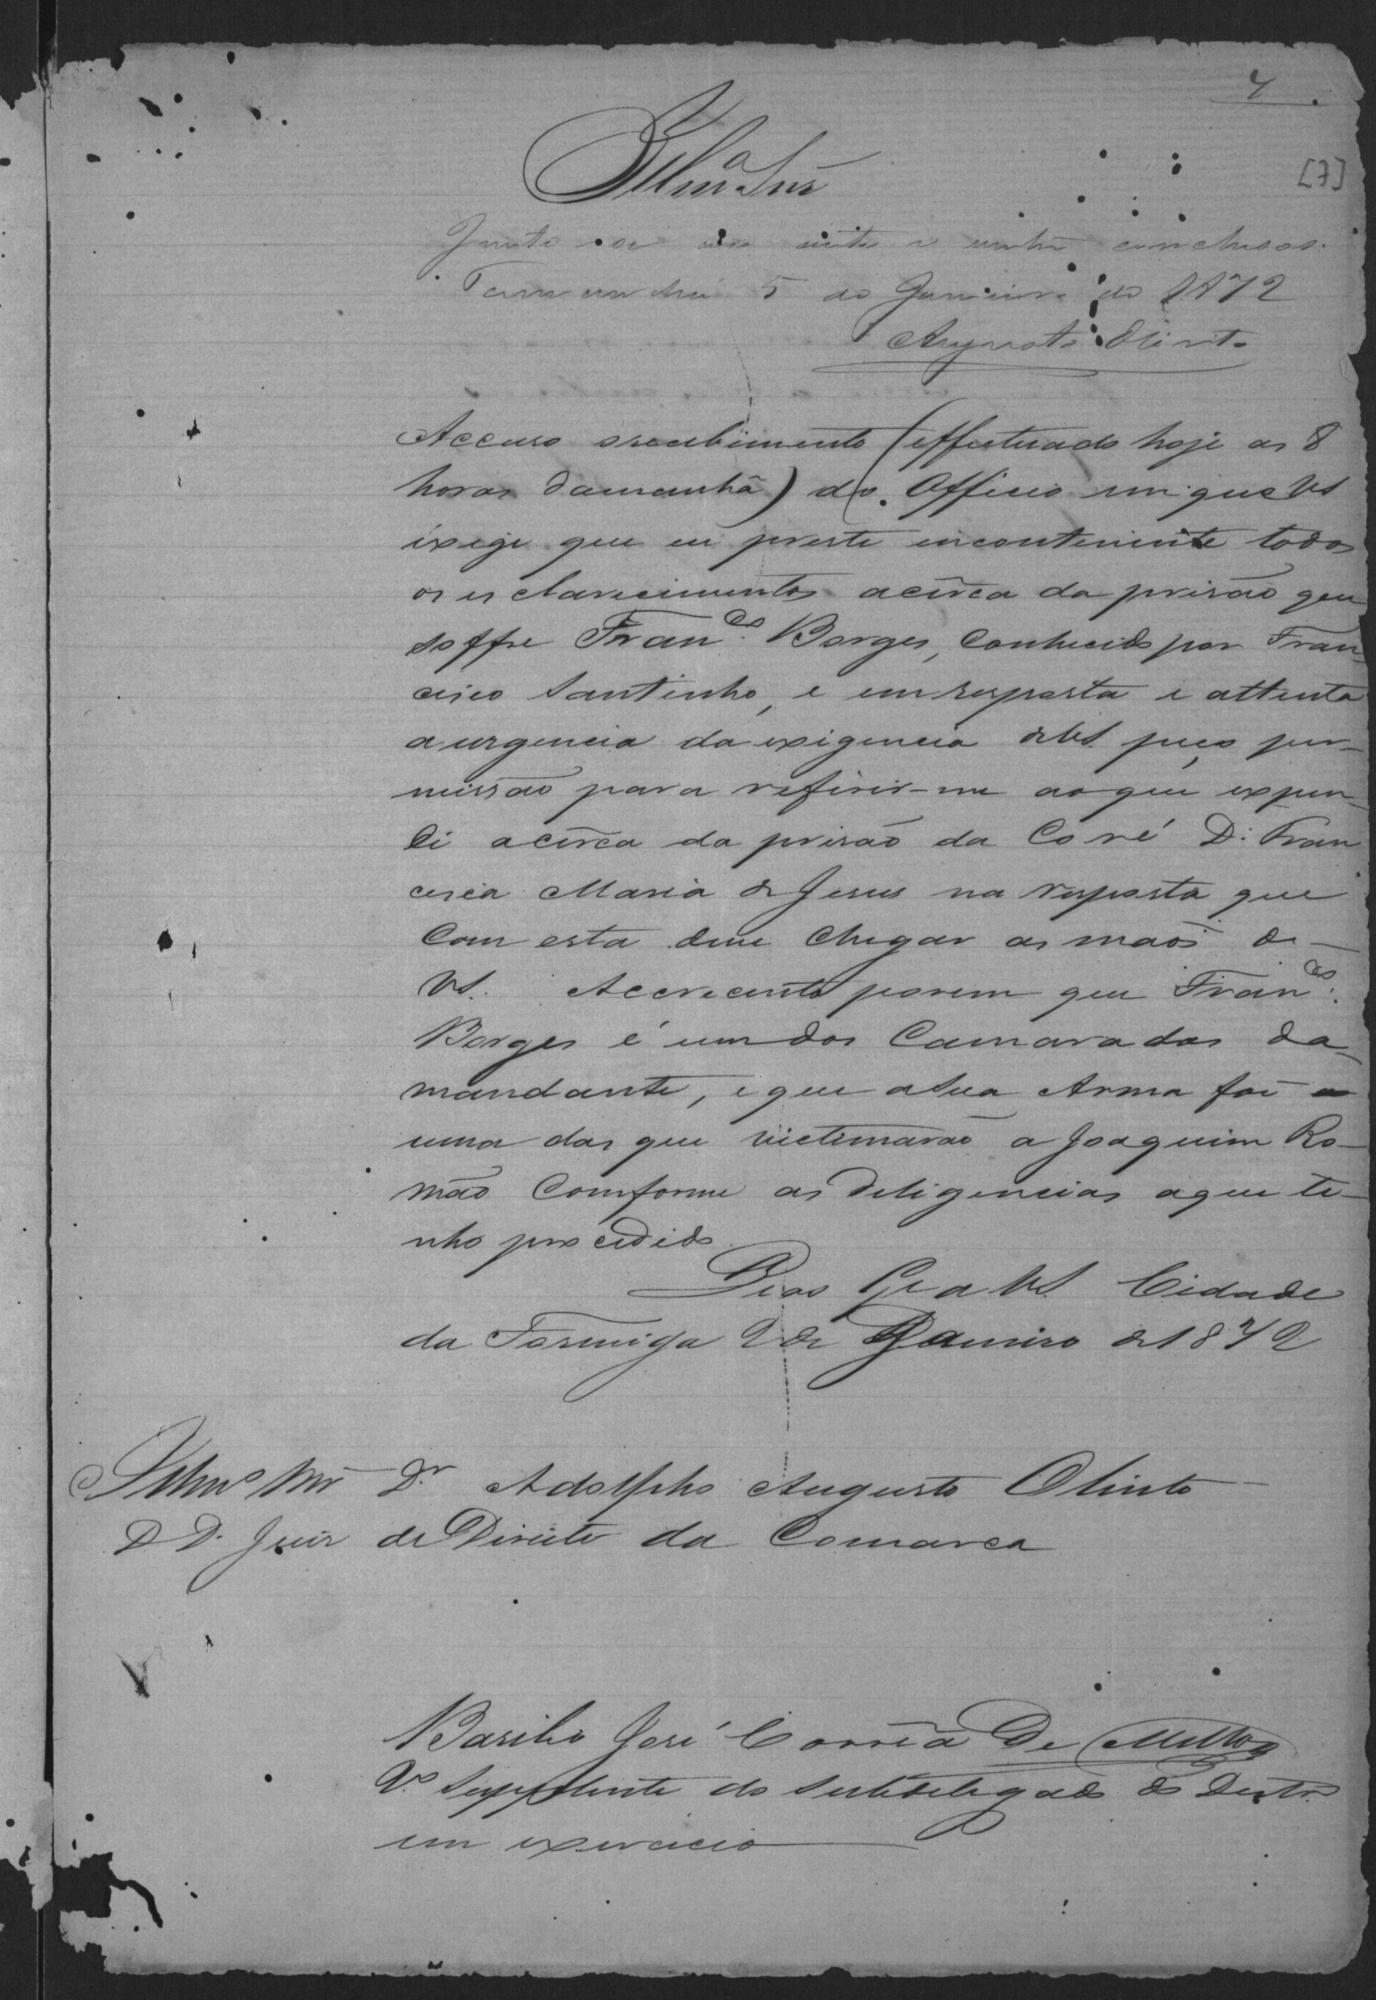 7
[7]
Illmo Snr
Junte aos autos e venha conclusos.
Tamanduá 5 de Janeiro de 1872
Augusto Olinto
Accuso orecebimento (effectuado hoje as 8
horas damanhã) do Officio em que VS
exige que eu preste incontinente todos
os esclarecimentos acêrca da prisão que
soffre Franco. Borges, Conhecido por Fran-
cisco Santinho, e em resposta e attenta
a urgencia da exigencia de VS. peço per-
missão para referir-me ao que expen-
di acêrca da prisão da Co ré D. Fran
cisca Maria de Jesus na resposta que
Com esta deve chegar as mãos de-
VS. Accrecento porem que Franco.
Borges é um dos Camaradas da-
mandante, e que a Sua Arma foi a
uma das que victimarão a Joaquim Ro-
mão Comforme as deligencias aque te-
nho procedido
Deos Ge a VS. Cidade
da Formiga 2 de Janeiro de 1872
Illmo Snr Dr Adolpho Augusto Olinto
D D. Juiz de Direito da Comarca
Basilio José Corrêa De Mello
Supplente do Subdelegado do Destro
em exercicio